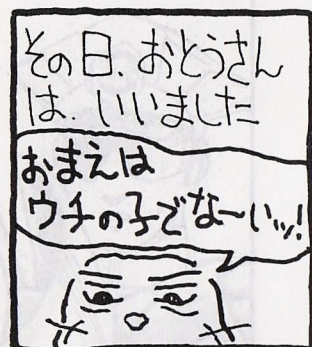 その日、おとうさん
は、いいました
おまえは
ウチの子でな〜いッ!